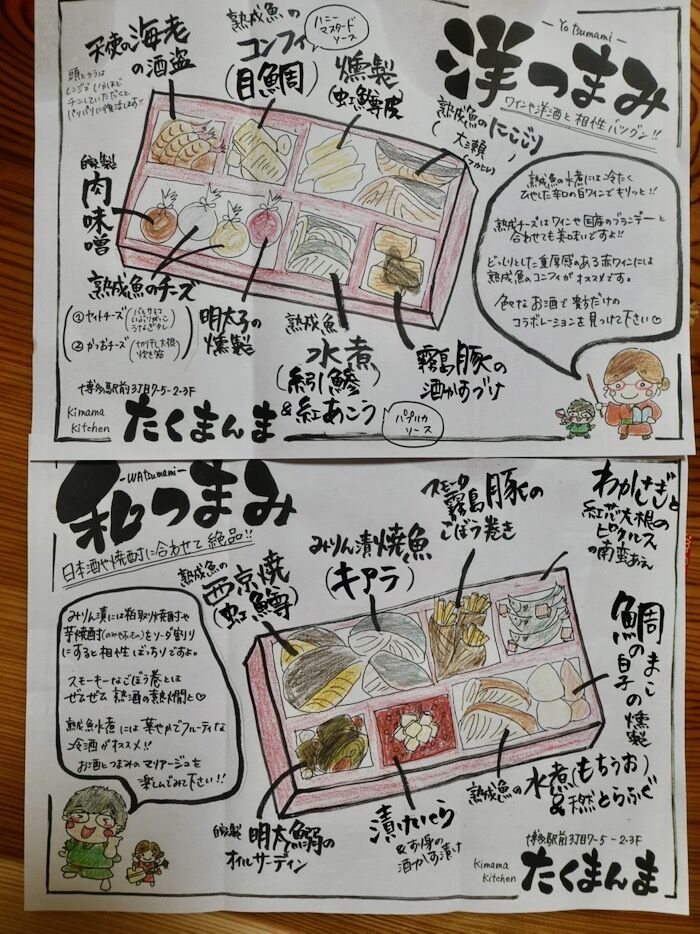 洋つまみ
-Yotsumami-
ワインや洋酒と相性バツグン!!
天使の海老
の酒盗
頭とカラは
レンジでいうほど
チンしていただくと
パリパリに復活します!!
熟成魚の
コンフィ
(目鯛)
ハニー
マスタード
ソース
燻製
(虹鱒皮)
熟成魚のにこごり
自家製
肉味噌
熟成魚のチーズ
①セイトチーズ
うなぎタレ
②かつおチーズ
切り干し大根
明太子の
燻製
熟成魚
水煮
(糸引鯵)
&紅あこう
パプリカ
ソース
霧島豚の
酒かすづけ
熟成魚の水煮には冷たく
ひやした辛口の白ワインでキリッと!!
熟成チーズはワインや国産のブランデーと
合わせても美味いですよ!!
どっしりとした重厚感のある赤ワインには
熟成魚のコンフィがオススメです。
色々なお酒で貴方だけの
コラボレーションを見つけて下さい♡
博多駅前3丁目7-5-2・3F
Kimama
Kitchen
たくまんま
和つまみ
-WAtsumami-
日本酒や焼酎に合わせて絶品!!
熟成魚の
西京焼
(虹鱒)
みりん漬焼魚
(キアラ)
スモーク
霧島豚の
ごぼう巻き
わかさぎと
紅芯大根の
ピクルス
の南蛮あえ
鯛まこ
魚の白子の燻製
熟成魚の水煮(もちうお)
&天然とらふぐ
漬けいくら
&お豆腐の
酒かす漬け
自家製
明太鰯の
オイルサーディン
みりん漬には粕取り焼酎や
芋焼酎(のみやすいもの)をソーダ割りに
にすると相性ばっちりですよ。
スモーキーなごぼう巻とは
ぜひぜひ熟酒の熱燗と♡
熟成魚水煮には華やかでフルーティな
冷酒がオススメ!!
お酒とつまみのマリアージュを
楽しんでみて下さい!!
博多駅前3丁目7-5-2・3F
Kimama
Kitchen
たくまんま